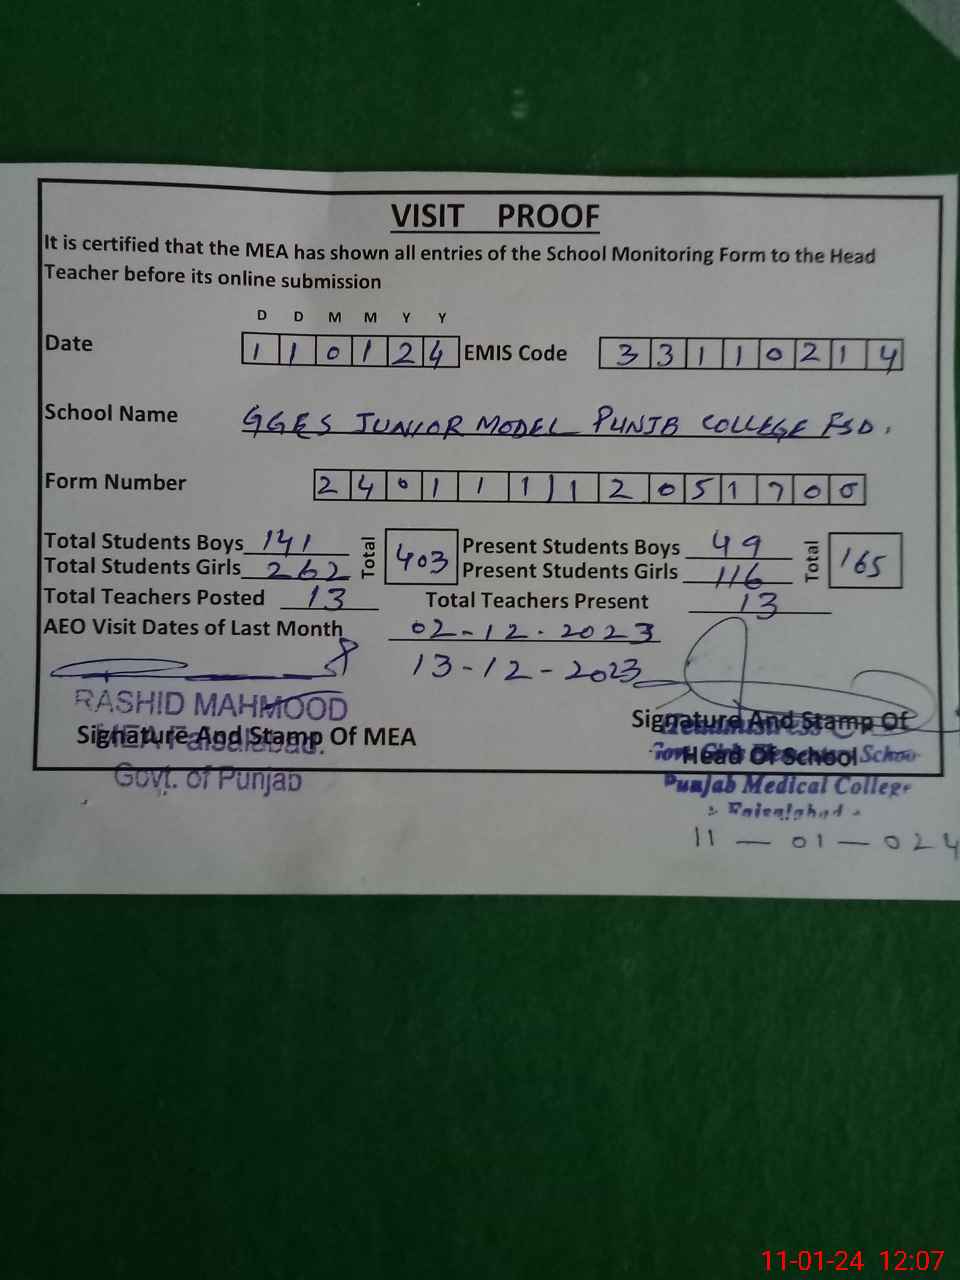 VISIT PROOF
It is certified that the MEA has shown all entries of the School Monitoring Form to the Head
Teacher before its online submission
D D M M Y Y
Date 1 1 0 1 2 4 EMIS Code 3 3 1 1 0 2 1 4
School Name GGES JUNIOR MODEL PUNJB COLLEGE FSD.
Form Number 2 4 0 1 1 1 1 1 2 0 5 1 7 0 0
Total Students Boys 141 Total 403 Present Students Boys 49 Total 165
Total Students Girls 262 Present Students Girls 116
Total Teachers Posted 13 Total Teachers Present 13
AEO Visit Dates of Last Month 02-12-2023
13-12-2023
RASHID MAHMOOD
Signature And Stamp Of MEA
MEA Faisalabad.
Govt. of Punjab
Signature And Stamp Of
Head Of School
Headmistress
School
Punjab Medical College
Faisalabad
11-01-024
11-01-24 12:07